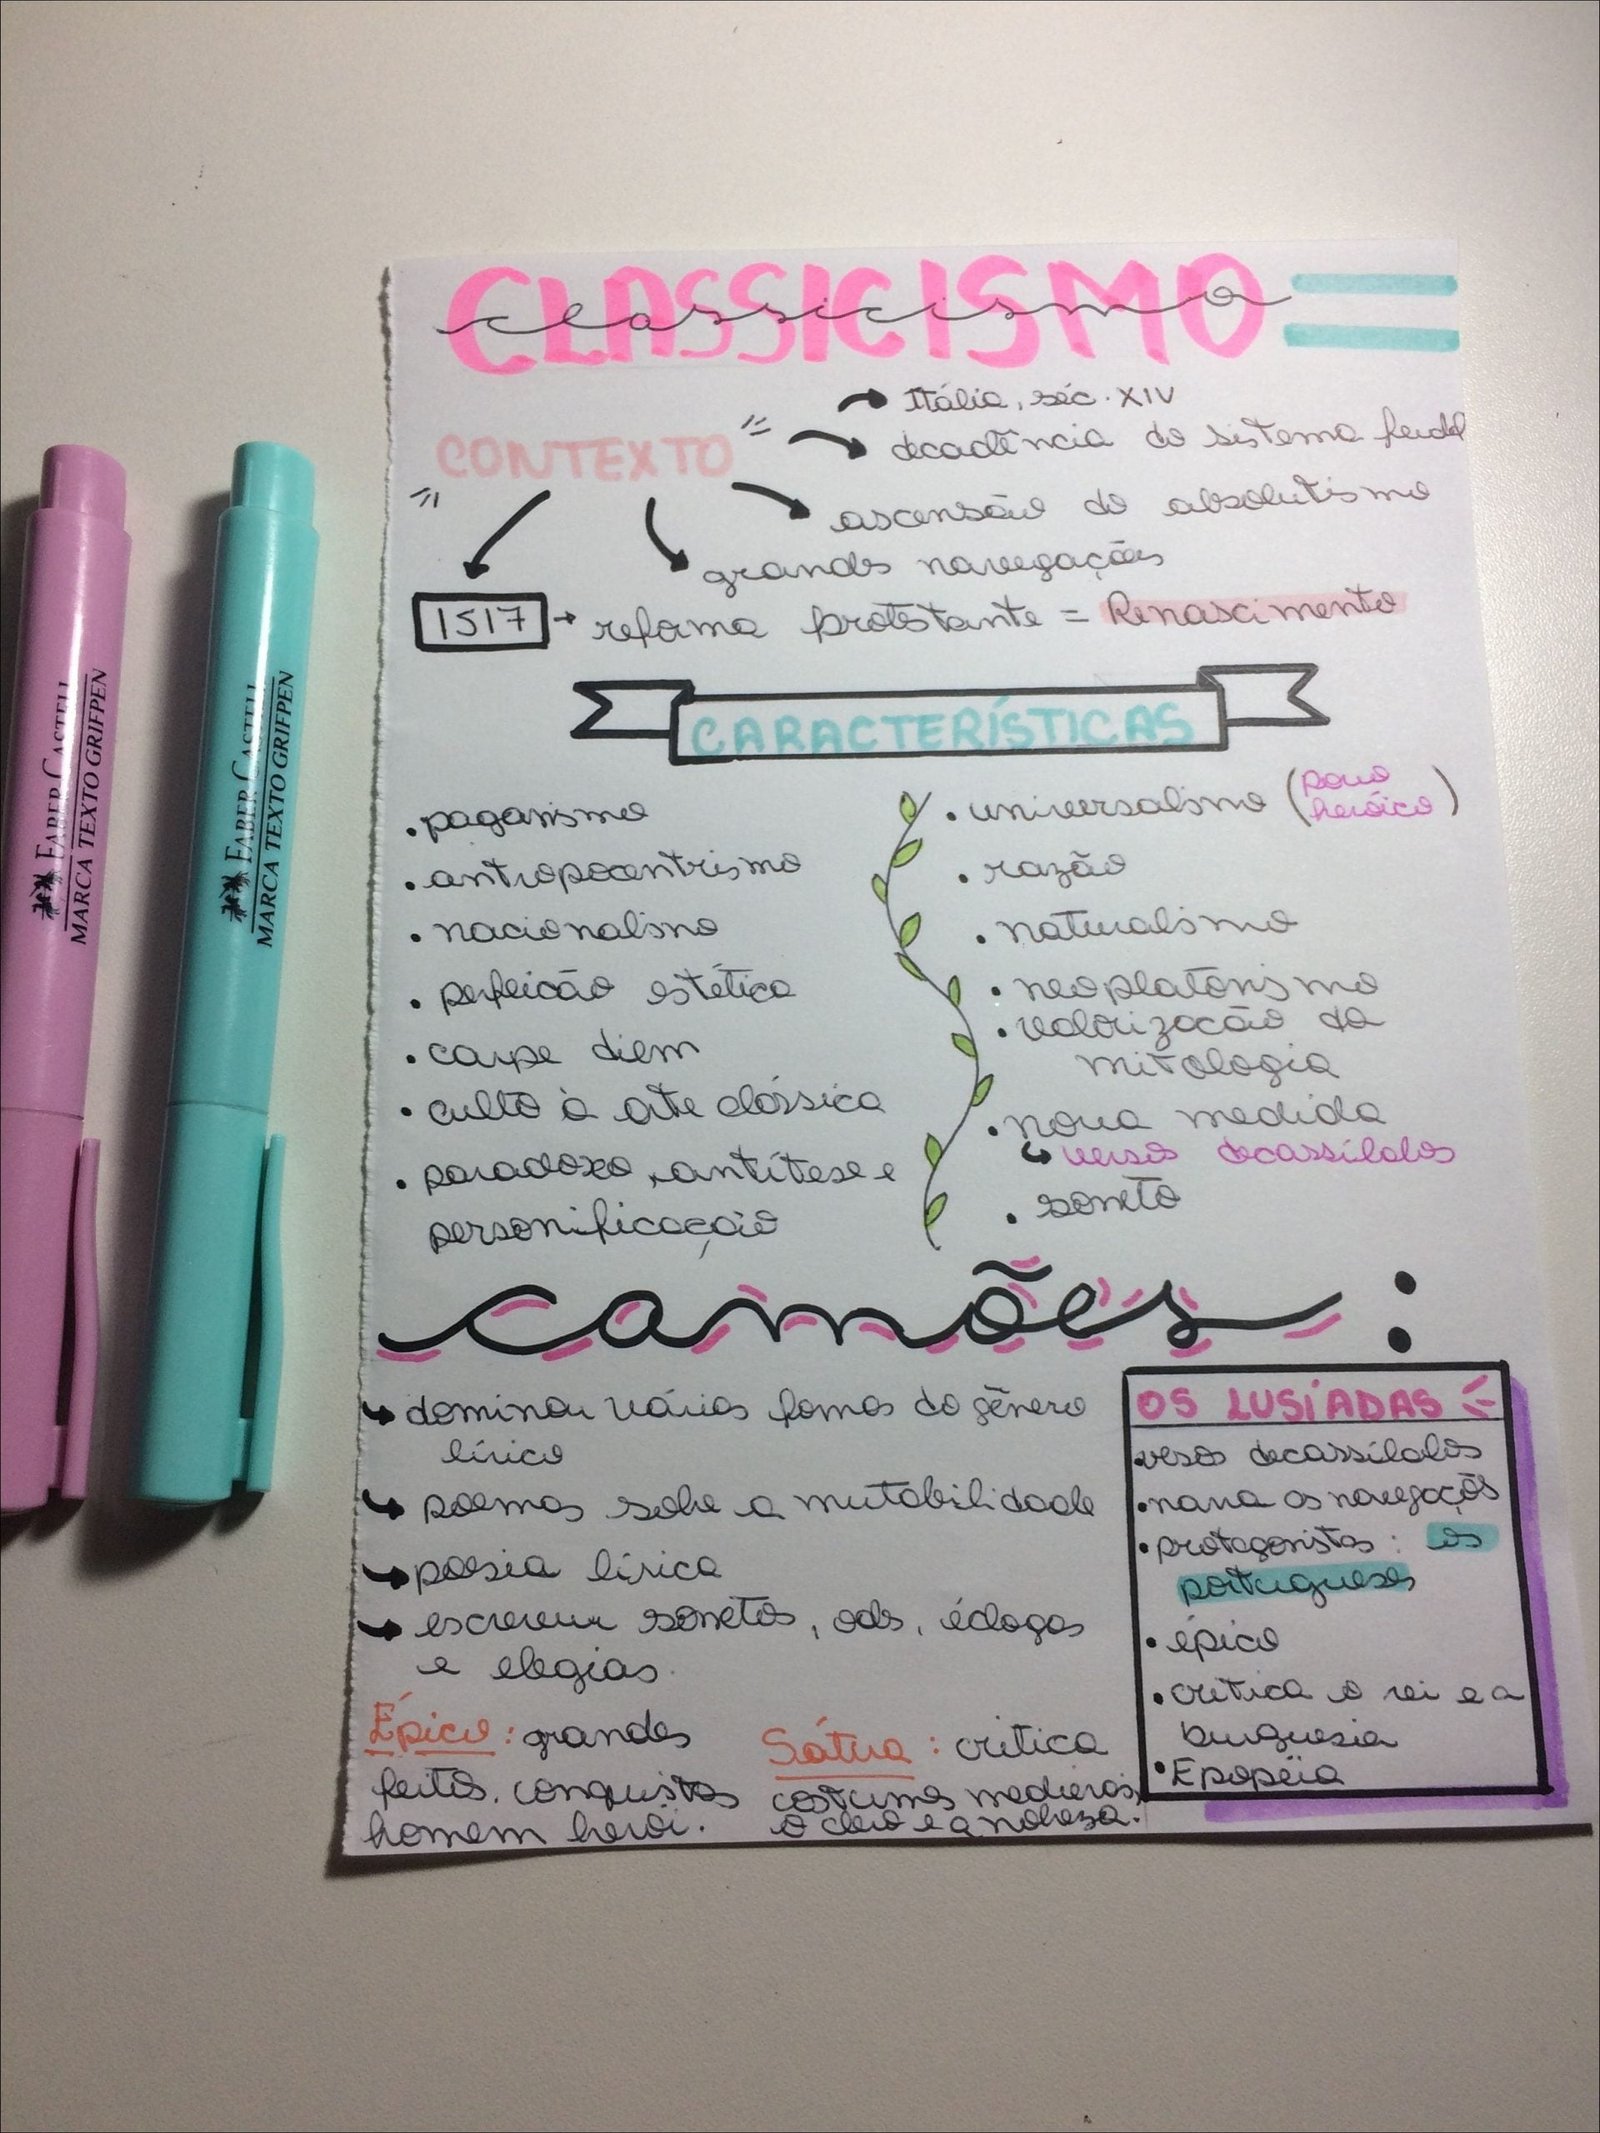 CLASSICISMO
classicismo
CONTEXTO
Itália, séc. XIV
decadência do sistema feudal
ascensão do absolutismo
grandes navegações
1517 → reforma protestante = Renascimento
CARACTERÍSTICAS
• paganismo
• antropocentrismo
• nacionalismo
• perfeição estética
• carpe diem
• culto à arte clássica
• paradoxo, antítese e
personificação
• universalismo (povo
heróico)
• razão
• naturalismo
• neoplatonismo
• valorização da
mitologia
• nova medida
↳ versos decassílabos
• soneto
camões:
↳ dominou várias formas do gênero
lírico
↳ poemas sobre a mutabilidade
↳ poesia lírica
↳ escreveu sonetos, odes, éclogas
e elegias.
Épico: grandes
feitos, conquistas
homem herói.
Sátira: critica
costumes medievais,
o clero e a nobreza.
OS LUSÍADAS
• versos decassílabos
• narra as navegações
• protagonistas: os
portugueses
• épico
• critica o rei e a
burguesia
• Epopéia
FABER CASTELL
MARCA TEXTO GRIFPEN
FABER CASTELL
MARCA TEXTO GRIFPEN